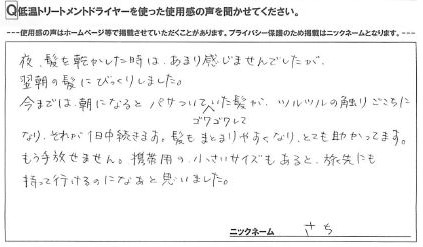 Q低温トリートメントドライヤーを使った使用感の声を聞かせてください。
---使用感の声はホームページ等で掲載させていただくことがあります。プライバシー保護のため掲載はニックネームとなります。---
夜、髪を乾かした時は、あまり感じませんでしたが、
翌朝の髪にびっくりしました。
今までは、朝になると パサついていた髪が、ツルツルの触りごこちに
ゴワゴワして
なり、それが1日中続きます。髪も まとまりやすくなり、とても助かってます。
もう手放せません。携帯用の 小さいサイズもあると、旅先にも
持って行けるのになあと思いました。
ニックネーム さち